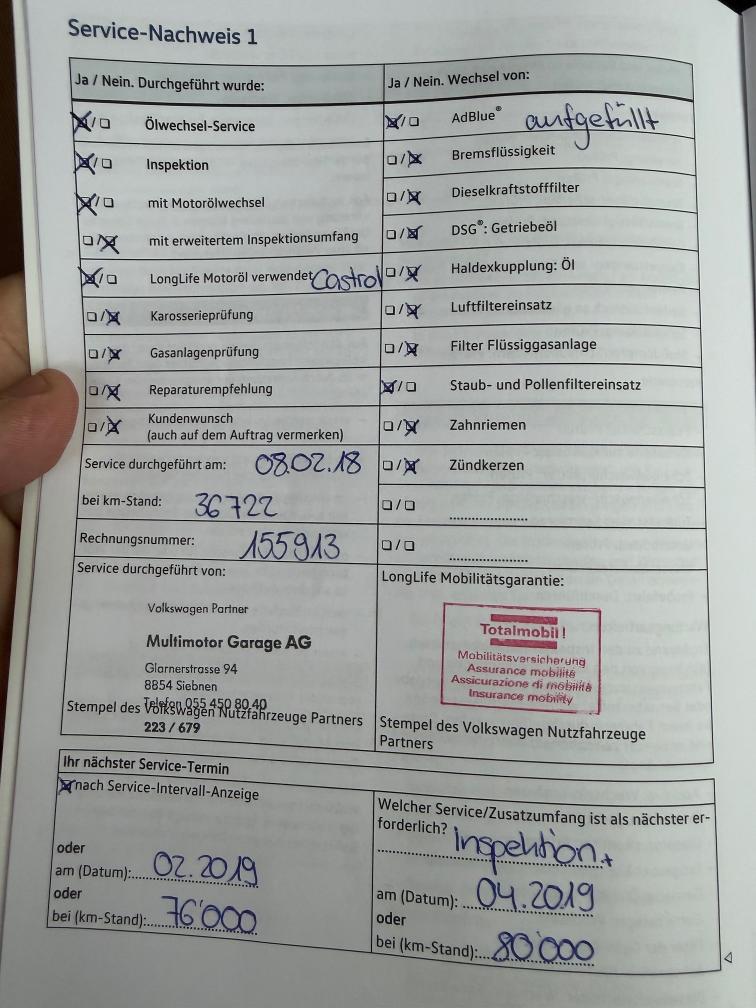 Service-Nachweis 1
Ja / Nein. Durchgeführt wurde:
Ölwechsel-Service
Inspektion
mit Motorölwechsel
mit erweitertem Inspektionsumfang
LongLife Motoröl verwendet Castrol
Karosserieprüfung
Gasanlagenprüfung
Reparaturempfehlung
Kundenwunsch
(auch auf dem Auftrag vermerken)
Service durchgeführt am: 08.02.18
bei km-Stand: 36722
Rechnungsnummer: 155913
Service durchgeführt von:
Volkswagen Partner
Multimotor Garage AG
Glarnerstrasse 94
8854 Siebnen
Telefon 055 450 80 40
Stempel des Volkswagen Nutzfahrzeuge Partners
223 / 679
Ja / Nein. Wechsel von:
AdBlue® aufgefüllt
Bremsflüssigkeit
Dieselkraftstofffilter
DSG®: Getriebeöl
Haldexkupplung: Öl
Luftfiltereinsatz
Filter Flüssiggasanlage
Staub- und Pollenfiltereinsatz
Zahnriemen
Zündkerzen
LongLife Mobilitätsgarantie:
Totalmobil!
Mobilitätsversicherung
Assurance mobilité
Assicurazione di mobilità
Insurance mobility
Stempel des Volkswagen Nutzfahrzeuge
Partners
Ihr nächster Service-Termin
nach Service-Intervall-Anzeige
oder
am (Datum): 02.2019
oder
bei (km-Stand): 76'000
Welcher Service/Zusatzumfang ist als nächster er-
forderlich? Inspektion +
am (Datum): 04.2019
oder
bei (km-Stand): 80'000